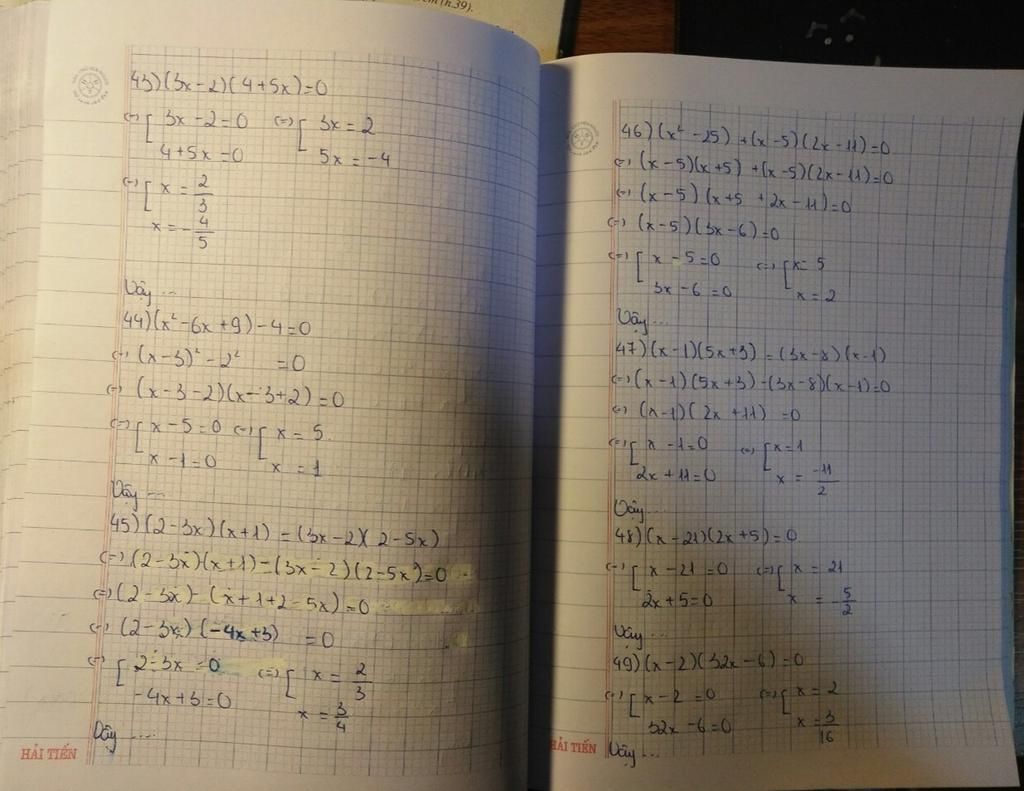 cm (h.39).
43) (3x-2)(4+5x)=0
(=) [ 3x-2=0 (=) [ 3x=2
4+5x=0 5x=-4
(=) [ x=2/3
x=-4/5
Vậy ...
44) (x²-6x+9)-4=0
(=) (x-3)²-2² =0
(=) (x-3-2)(x-3+2)=0
(=) [ x-5=0 (=) [ x=5
x-1=0 x=1
Vậy ...
45) (2-3x)(x+1)=(3x-2)(2-5x)
(=) (2-3x)(x+1)-(3x-2)(2-5x)=0
(=) (2-3x)-(x+1+2-5x)=0
(=) (2-3x)(-4x+3) =0
(=) [ 2-3x=0 (=) [ x=2/3
-4x+3=0 x=3/4
Vậy ...
HẢI TIẾN
46) (x²-25)+(x-5)(2x-11)=0
(=) (x-5)(x+5)+(x-5)(2x-11)=0
(=) (x-5)(x+5+2x-11)=0
(=) (x-5)(3x-6)=0
(=) [ x-5=0 (=) [ x=5
3x-6=0 x=2
Vậy ...
47) (x-1)(5x+3)=(3x-8)(x-1)
(=) (x-1)(5x+3)-(3x-8)(x-1)=0
(=) (x-1)(2x+11) =0
(=) [ x-1=0 (=) [ x=1
2x+11=0 x=-11/2
Vậy ...
48) (x-21)(2x+5)=0
(=) [ x-21=0 (=) [ x=21
2x+5=0 x=-5/2
Vậy ...
49) (x-2)(32x-6)=0
(=) [ x-2=0 (=) [ x=2
32x-6=0 x=3/16
Vậy ...
HẢI TIẾN